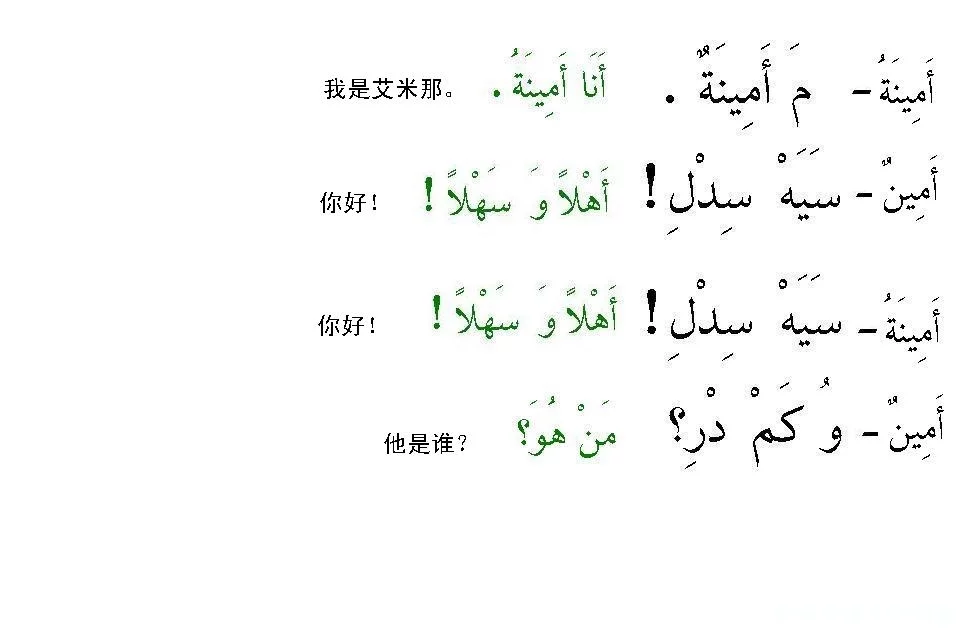 أَمِينَةُ - مَ أَمِينَةٌ . أَنَا أَمِينَةُ . 我是艾米那。
أَمِينٌ - سَيَهْ سِدْلِ! أَهْلاً وَ سَهْلاً! 你好！
أَمِينَةُ - سَيَهْ سِدْلِ! أَهْلاً وَ سَهْلاً! 你好！
أَمِينٌ - وُ كَمْ دْرِ؟ مَنْ هُوَ؟ 他是谁？